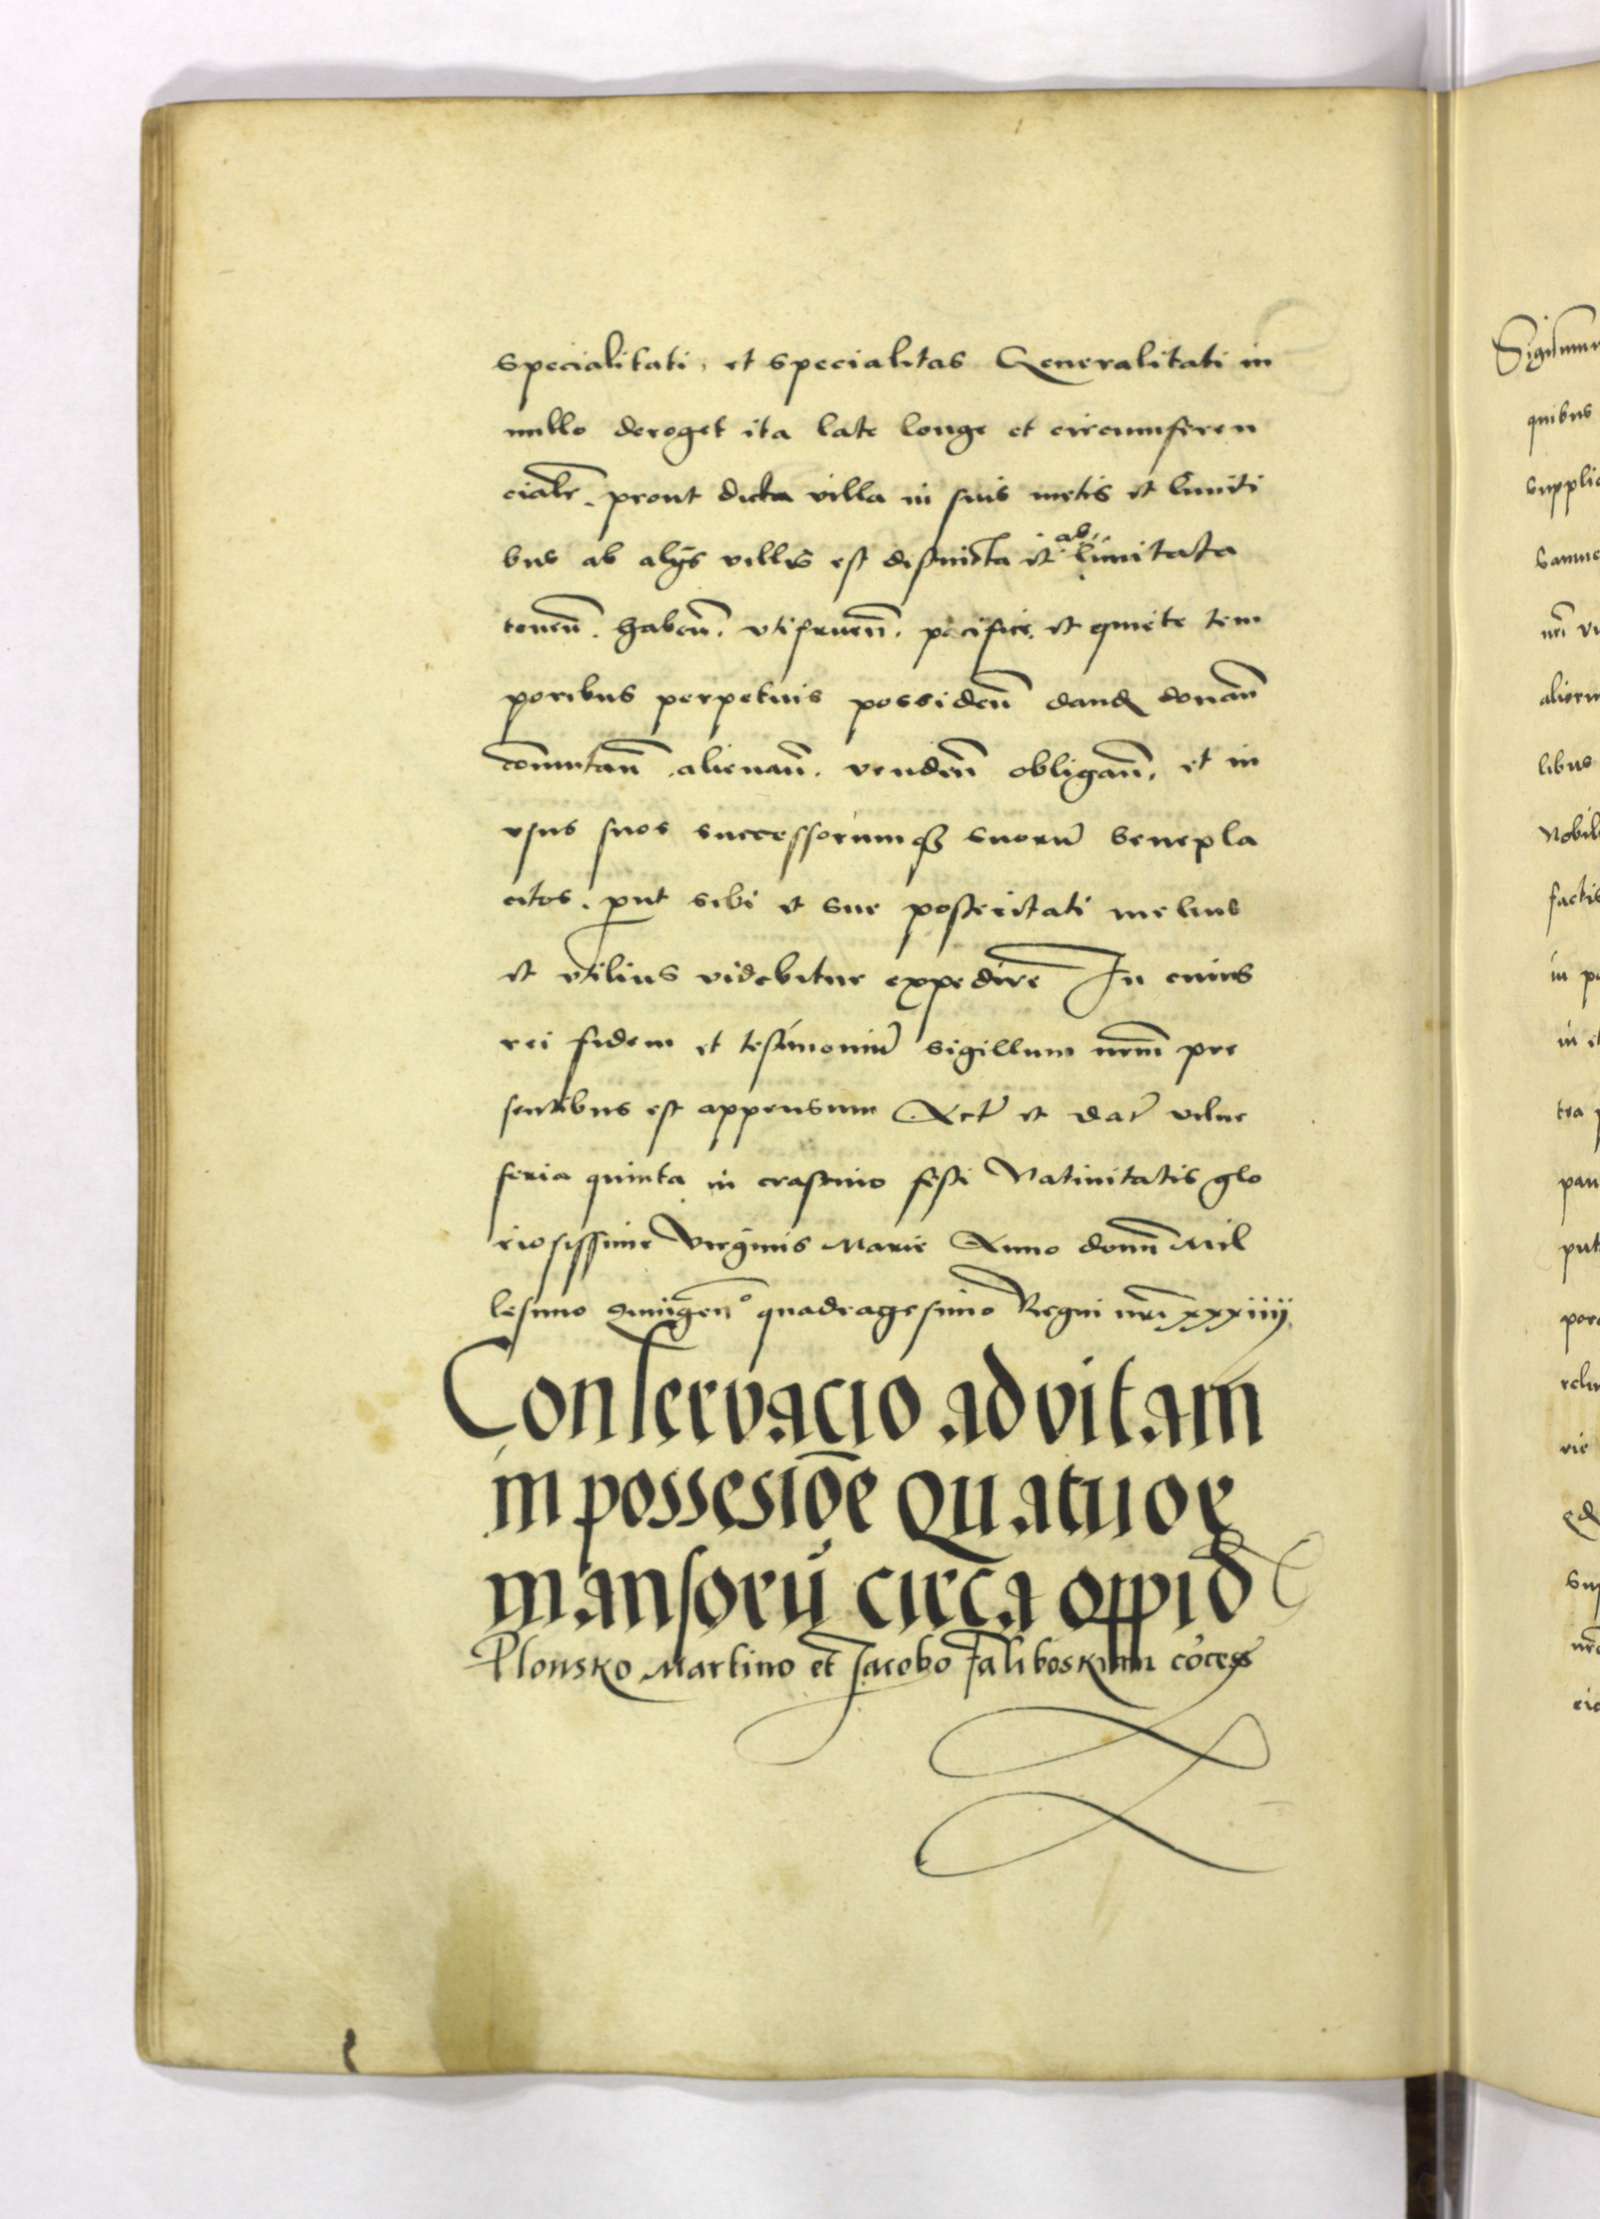 specialitati, et specialitas Generalitati in
nullo deroget ita late longe et circumferen
cialr̄. prout dicta villa in suis metis et limiti
bus ab alijs villis est distincta et ab limitata
teneñ. habeñ. vtifrueñ. pacifice. et quiete tem
poribus perpetuis possideñ dand donañ
cōmutañ. alienañ. vendeñ obligañ. et in
vsus suos successorumqz suoru̅ benepla
citos. put sibi et sue posteritati melius
et vtilius videbitur expedire In cuius
rei fidem et testimoniu̅ sigillum nrm̄ pre
sentibus est appensum Act̄ et dat̄ vilne
feria quinta in crastino festi Natiuitatis glo
riosissime Virginis Marie Anno domī Mil
lesimo quīgen° quadragesimo Regni nrī xxxiiij
Conseruacio ad vitam
in possesiōe Quatuor
mansorū circa oppid
Plonsko Martino et Jacobo Faliboskim cōcess
Sigismun
quibus
libus
Nobil
factis